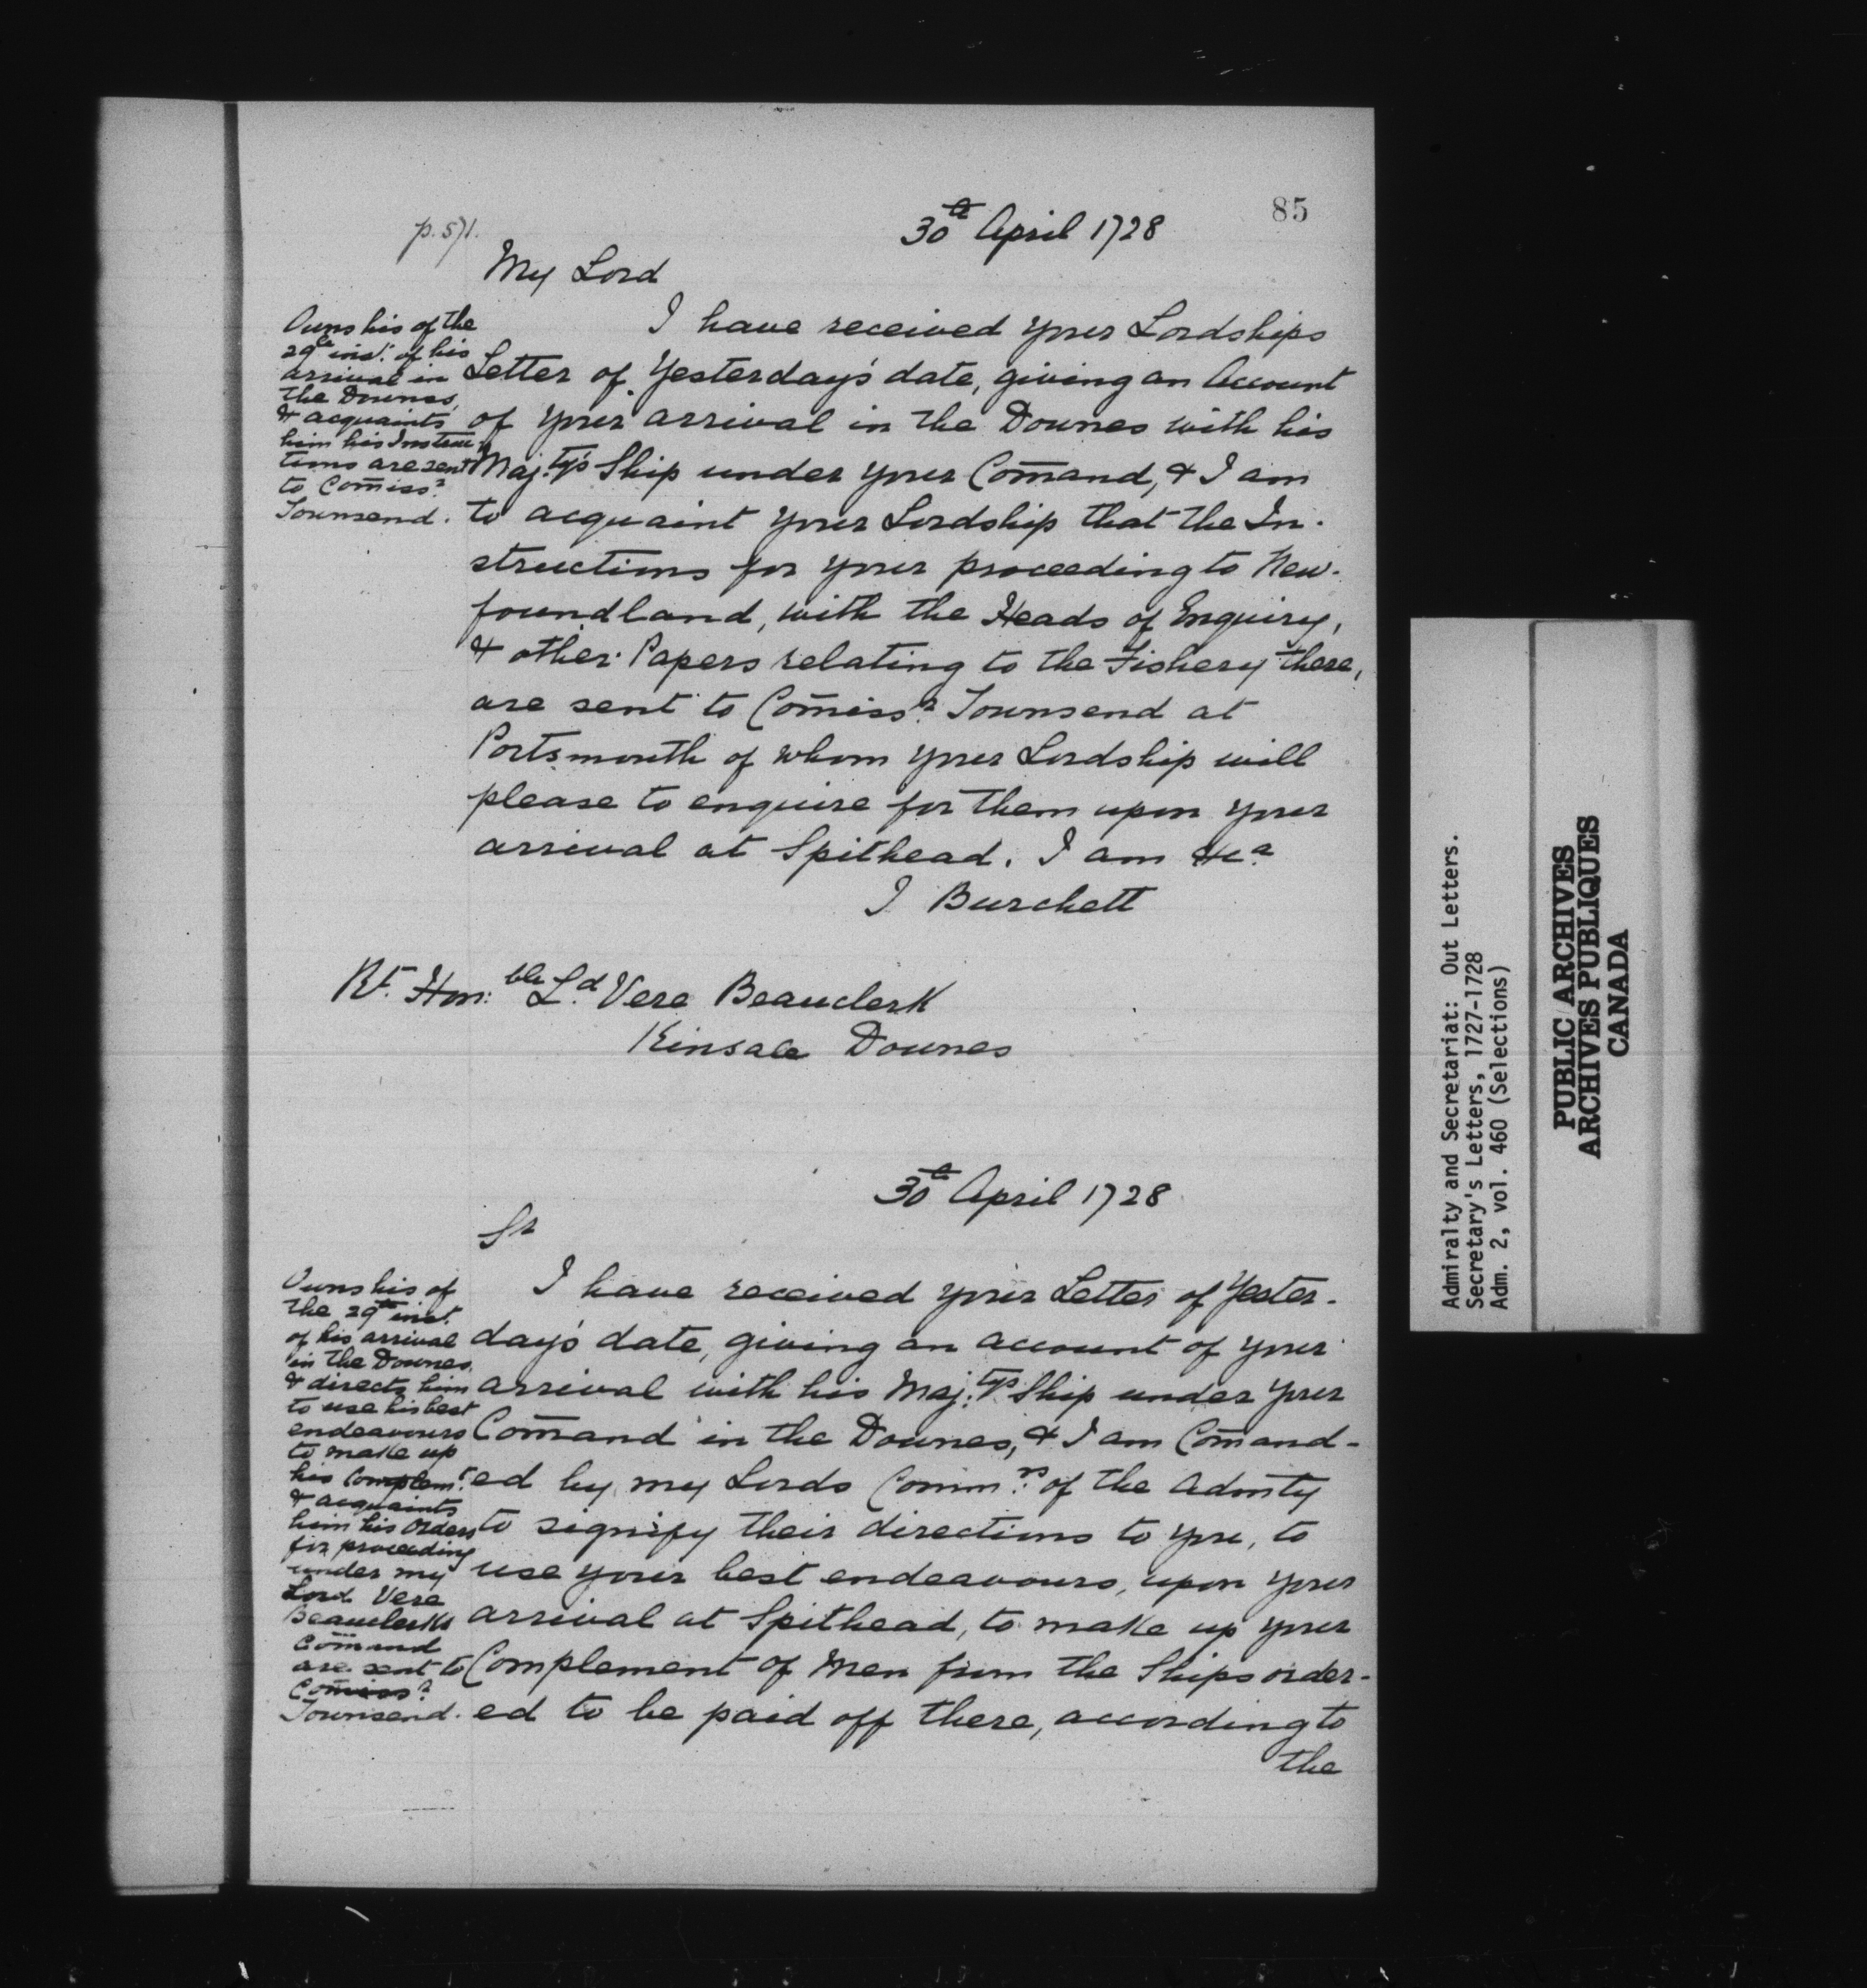 85
p. 571.
30th April 1728
My Lord
Owns his of the
29th inst. of his
arrival in
the Downes,
& acquaints
him his Instruc
tions are sent
to Com̄issr.
Townsend.
I have received your Lordships
Letter of Yesterday's date, giving an Account
of your arrival in the Downes with his
Maj:ty's Ship under your Com̄and, & I am
to acquaint your Lordship that the In-
structions for your proceeding to New-
foundland, with the Heads of Enquiry,
& other Papers relating to the Fishery there,
are sent to Com̄issr. Townsend at
Portsmouth of whom your Lordship will
please to enquire for them upon your
arrival at Spithead. I am &ca
J Burchett
Rt. Hon:ble Ld. Vere Beauclerk
Kinsale Downes
30th April 1728
Sr
Owns his of
the 29th inst.
of his arrival
in the Downes,
& directs him
to use his best
endeavours
to make up
his Complemt.
& acquaints
him his orders
for proceeding
under my
Lord Vere
Beauclerks
Com̄and
are sent to
Com̄issr.
Townsend.
I have received your Letter of Yester-
day's date, giving an account of your
arrival with his Maj:tys Ship under your
Com̄and in the Downes, & I am Com̄and-
ed by my Lords Commrs. of the Admty
to signify their directions to you, to
use your best endeavours, upon your
arrival at Spithead, to make up your
Complement of Men from the Ships order-
ed to be paid off there, according to
the
Admiralty and Secretariat: Out Letters.
Secretary's Letters, 1727-1728
Adm. 2, vol. 460 (Selections)
PUBLIC ARCHIVES
ARCHIVES PUBLIQUES
CANADA